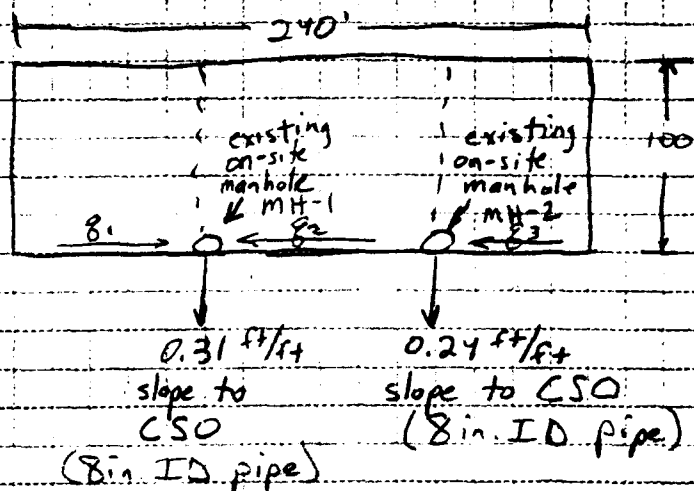 240'
100
existing
on-site
manhole
MH-1
existing
on-site
manhole
MH-2
8₁
8₂
8₃
0.31 ft/ft
slope to
CSO
(8 in. ID pipe)
0.24 ft/ft
slope to CSO
(8 in. ID pipe)